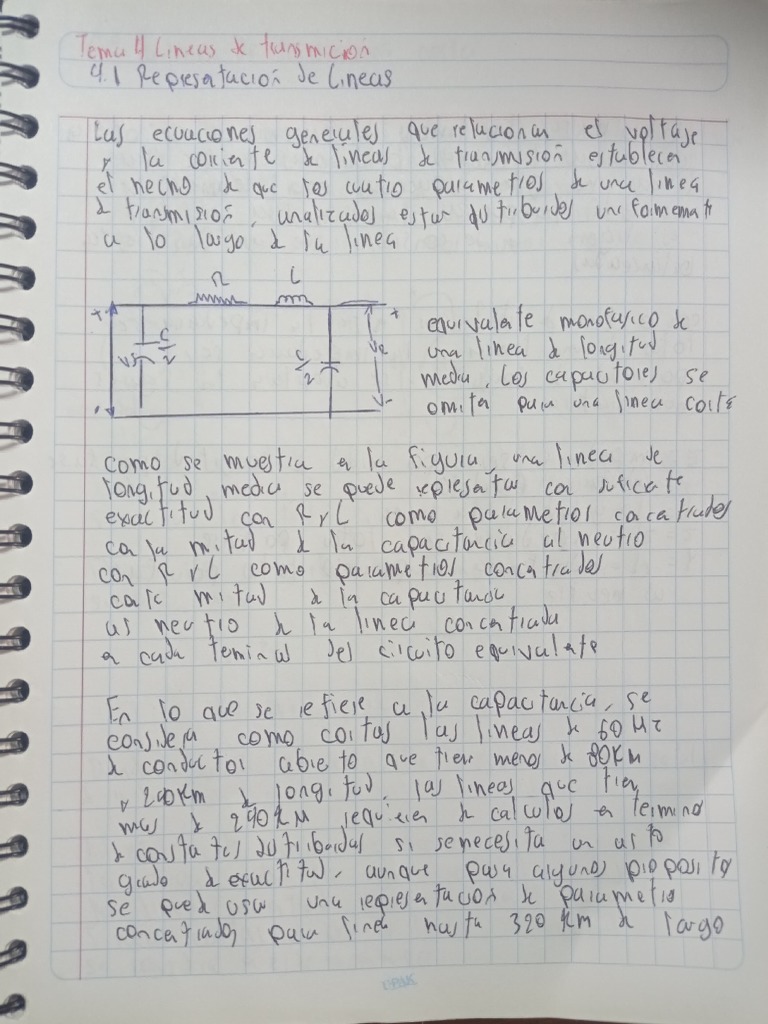 Tema 4 Lineas de transmicion
4.1 Representación de Lineas
Las ecuaciones generales que relacionan el voltaje
y la corriente de líneas de transmisión establecen
el hecho de que los cuatro parametros de una linea
de transmisión, analizados estan distribuidos uniformemente
a lo largo de la linea
R L
+ + 
Vs C/2 C/2 VR
- -
equivalente monofasico de
una linea de longitud
media, los capacitores se
omiten para una linea corta
como se muestra en la figura, una linea de
longitud media se puede representar con suficiente
exactitud con R y L como parametros concentrados
con la mitad de la capacitancia al neutro
con R y L como parametros concentrados
con la mitad de la capacitancia
al neutro de la linea concentrada
en cada terminal del circuito equivalente
En lo que se refiere a la capacitancia, se
considera como cortas las lineas de 60 Hz
de conductor abierto que tiene menos de 80 Km
y 240 Km de longitud, las lineas que tien
mas de 240 KM requieren de calculos en termino
de constantes distribuidas si se necesita un alto
grado de exactitud, aunque para algunos proposito
se puede usar una representacion de parametro
concentrados para linea hasta 320 Km de largo